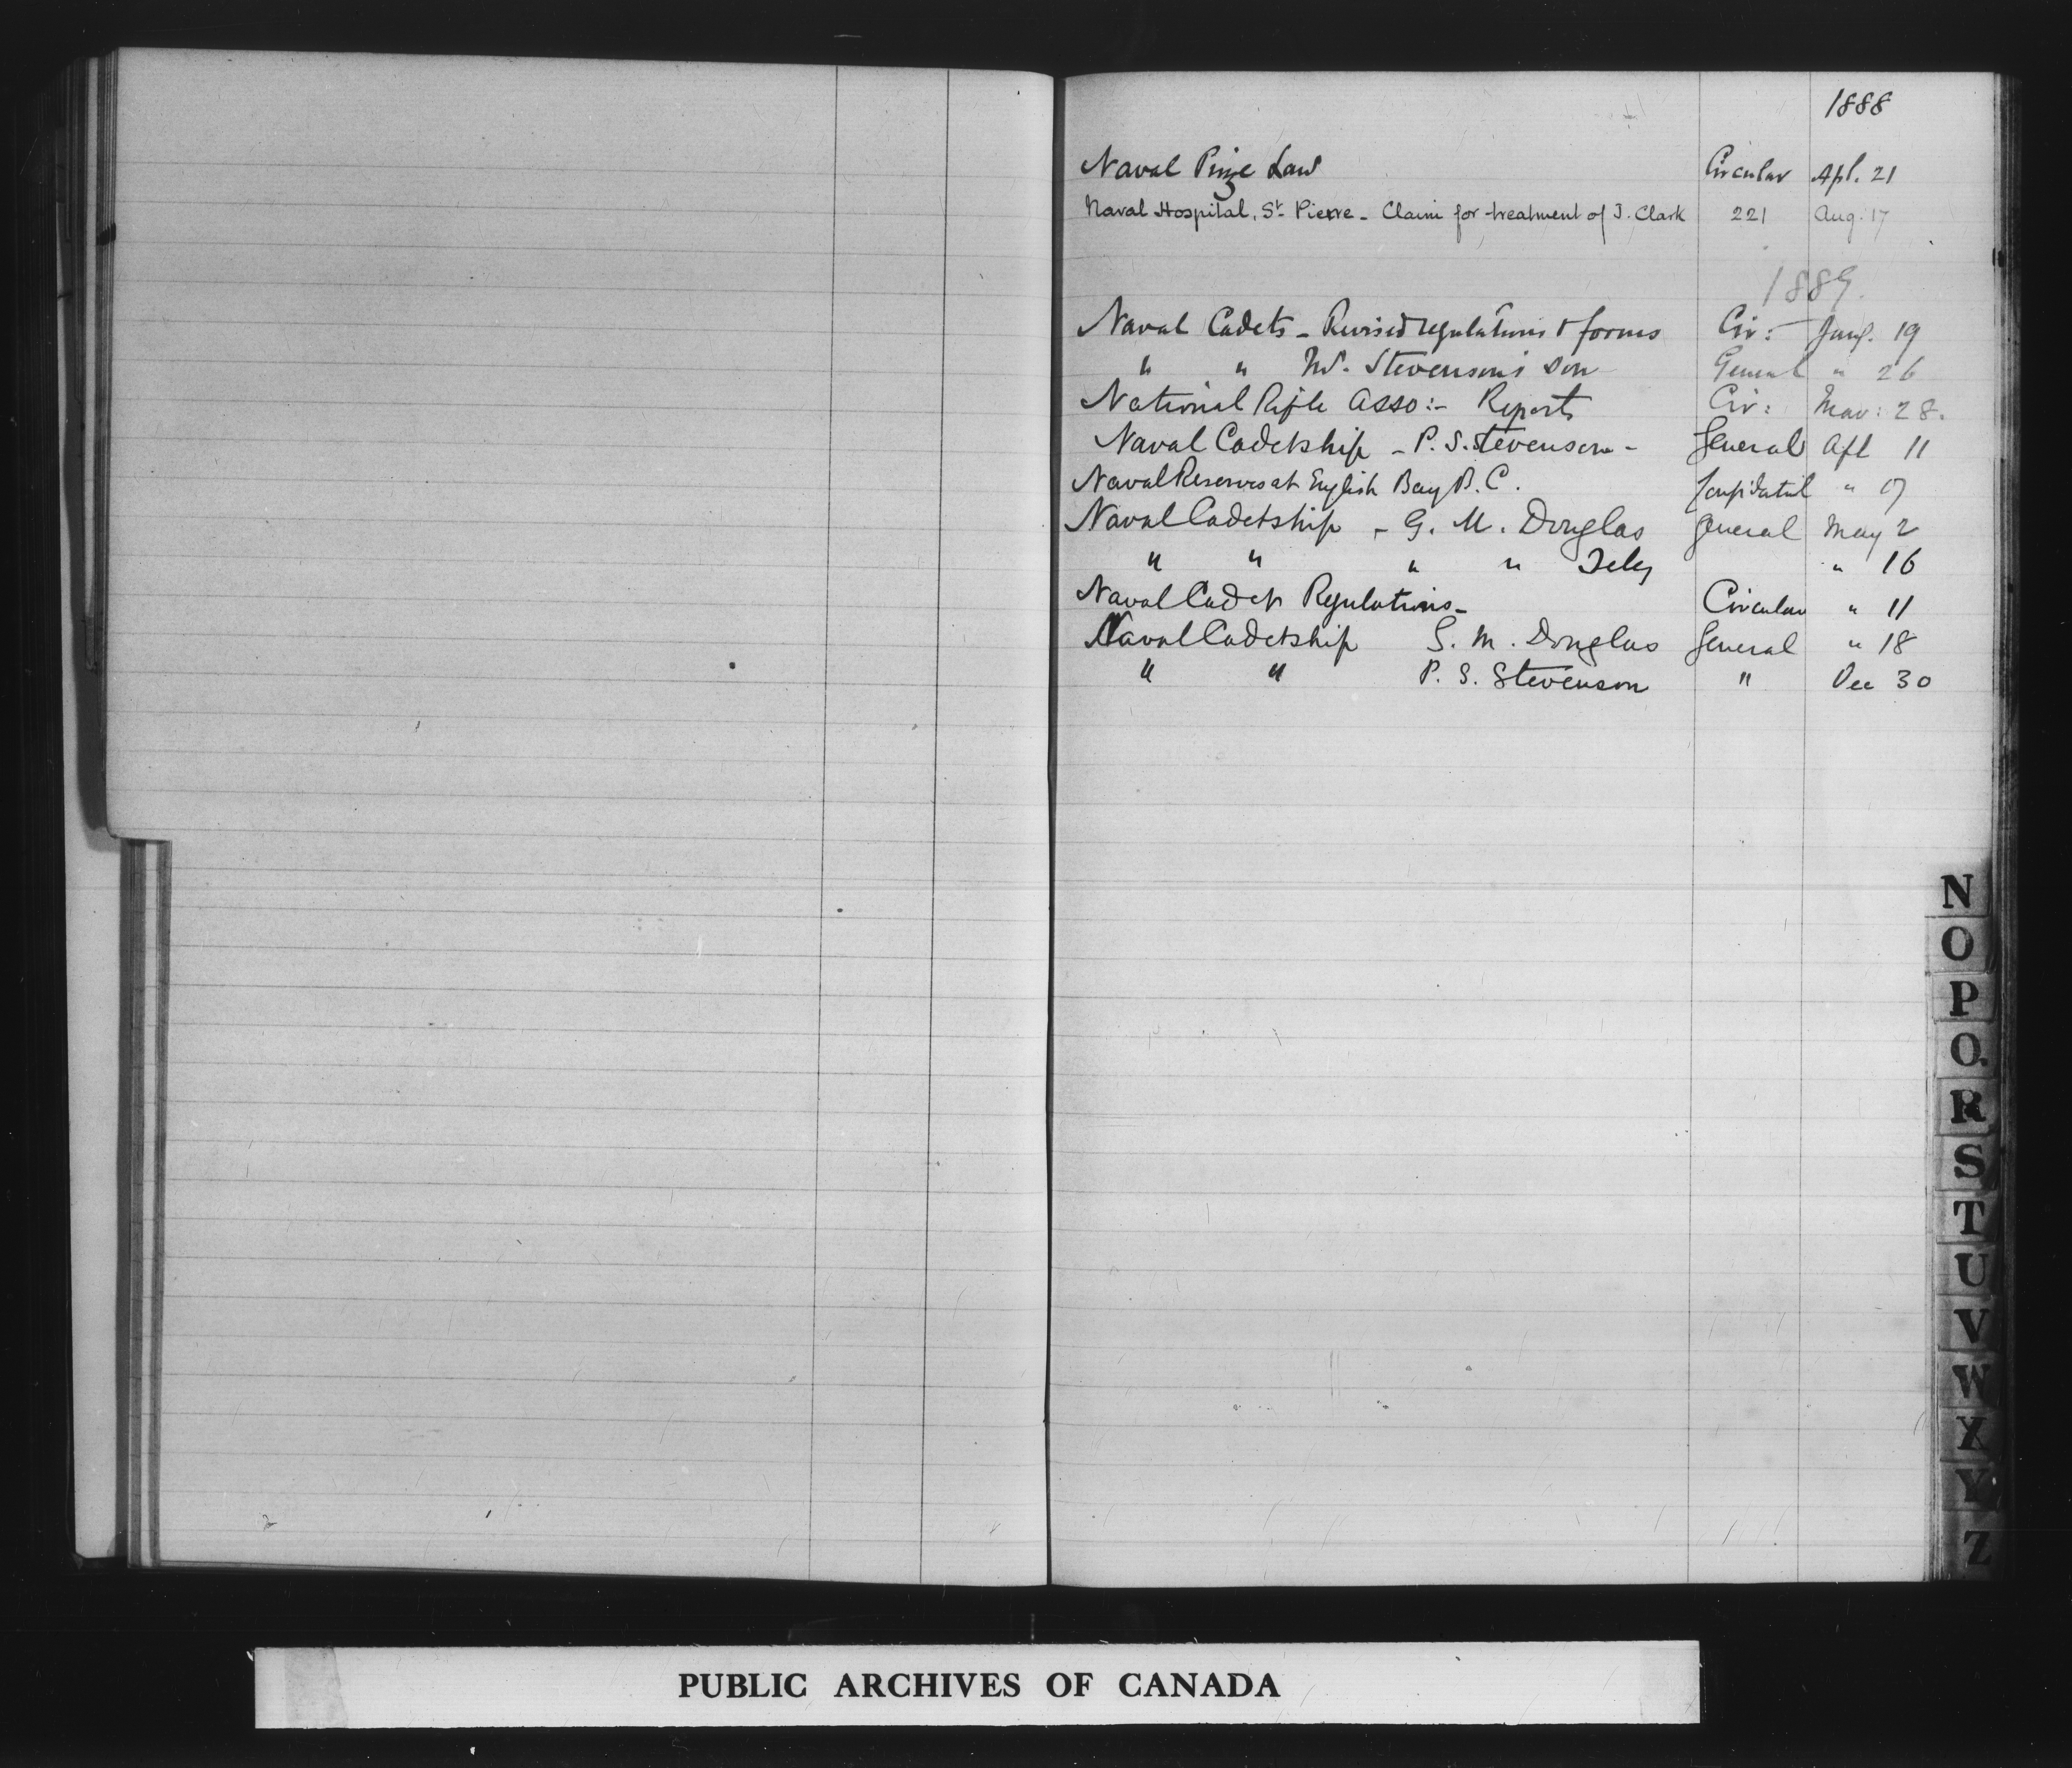 1888
Naval Prize Law Circular Apl. 21
Naval Hospital, St. Pierre - Claim for treatment of J. Clark 221 Aug. 17
1889.
Naval Cadets - Revised regulations & forms Cir: 19
" " Stevenson's son General " 26
National Rifle Asso:- Reports Cir: Mar: 28.
Naval Cadetship - P. S. Stevenson - General Apl 11
Naval Reserves at English Bay B.C. "
Naval Cadetship - G. M. Douglas General May 2
" " " " Teleg " 16
Naval Cadet Regulations - Circular " 11
Naval Cadetship G. M. Douglas General " 18
" " P. S. Stevenson " Dec 30
N
O
P
Q
R
S
T
U
V
W
X
Y
Z
PUBLIC ARCHIVES OF CANADA